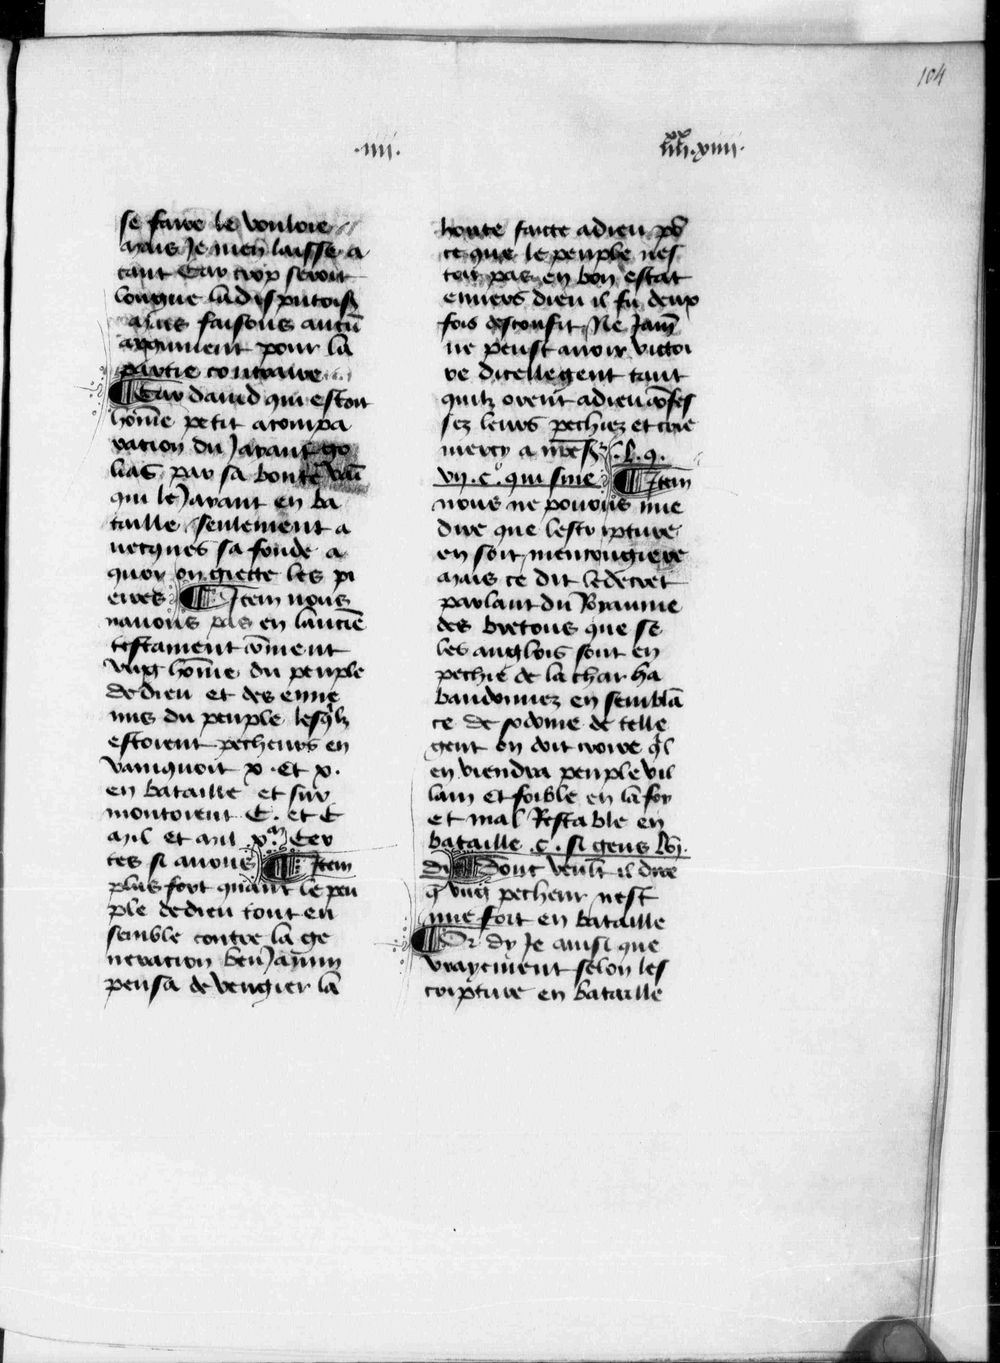 104
.iiii.
iiii xx .xiiii.
se faire le vouloie
mais Je men laisse a
tant Car trop seroit
longue la disputoisõ
Mais faisons aucũ
argument pour la
partie contraire
¶ Car dauid qui estoit
hõme petit acompa
racion du Jayant go
lias par sa bonte vaĩ
qui le Jayant en ba
taille seulement a
uecques sa fonde a
quoy on giette les pi
erres ¶ Item nous
nauons pas en lanciẽ
testament cõment
vng hõme du peuple
de dieu et des enne
mis du peuple lesqlz
estoient pecheurs en
vainquoit x. et x.
en bataille et sur
montoient C. et C
mil et mil xm Cer
tes si auons ¶ Item
plus fort quant le peu
ple de dieu tout en
semble contre la ge
neracion beniamin
pensa de vengier la
honte faicte a dieu pò
ce que le peuple nes
toit pas en bon estat
enuers dieu il fu deux
fois desconfit Ne Jam̃
ne peust auoir victoi
re dicelle gent tant
quilz orent a dieu cõfes
sez leurs pechiez et crie
mercy a
vij. c. qui sine ¶ Item
nous ne pouons mie
dire que lescripture
en soit mencongiere
Mais ce dit le decret
parlant du Royaume
des bretons que se
les anglois sont en
pechie de la char ha
bandonnez en semblã
ce de sodome de telle
gent on doit croire ql
en viendra peuple vil
lain et foible en la foy
et mal Restable en
bataille .c. si gens lvj.
di ¶ Donc veult il dire
q̃ vng pecheur nest
mie fort en bataille
¶ Or dy Je ainsi que
vrayement selon les
cripture en bataille